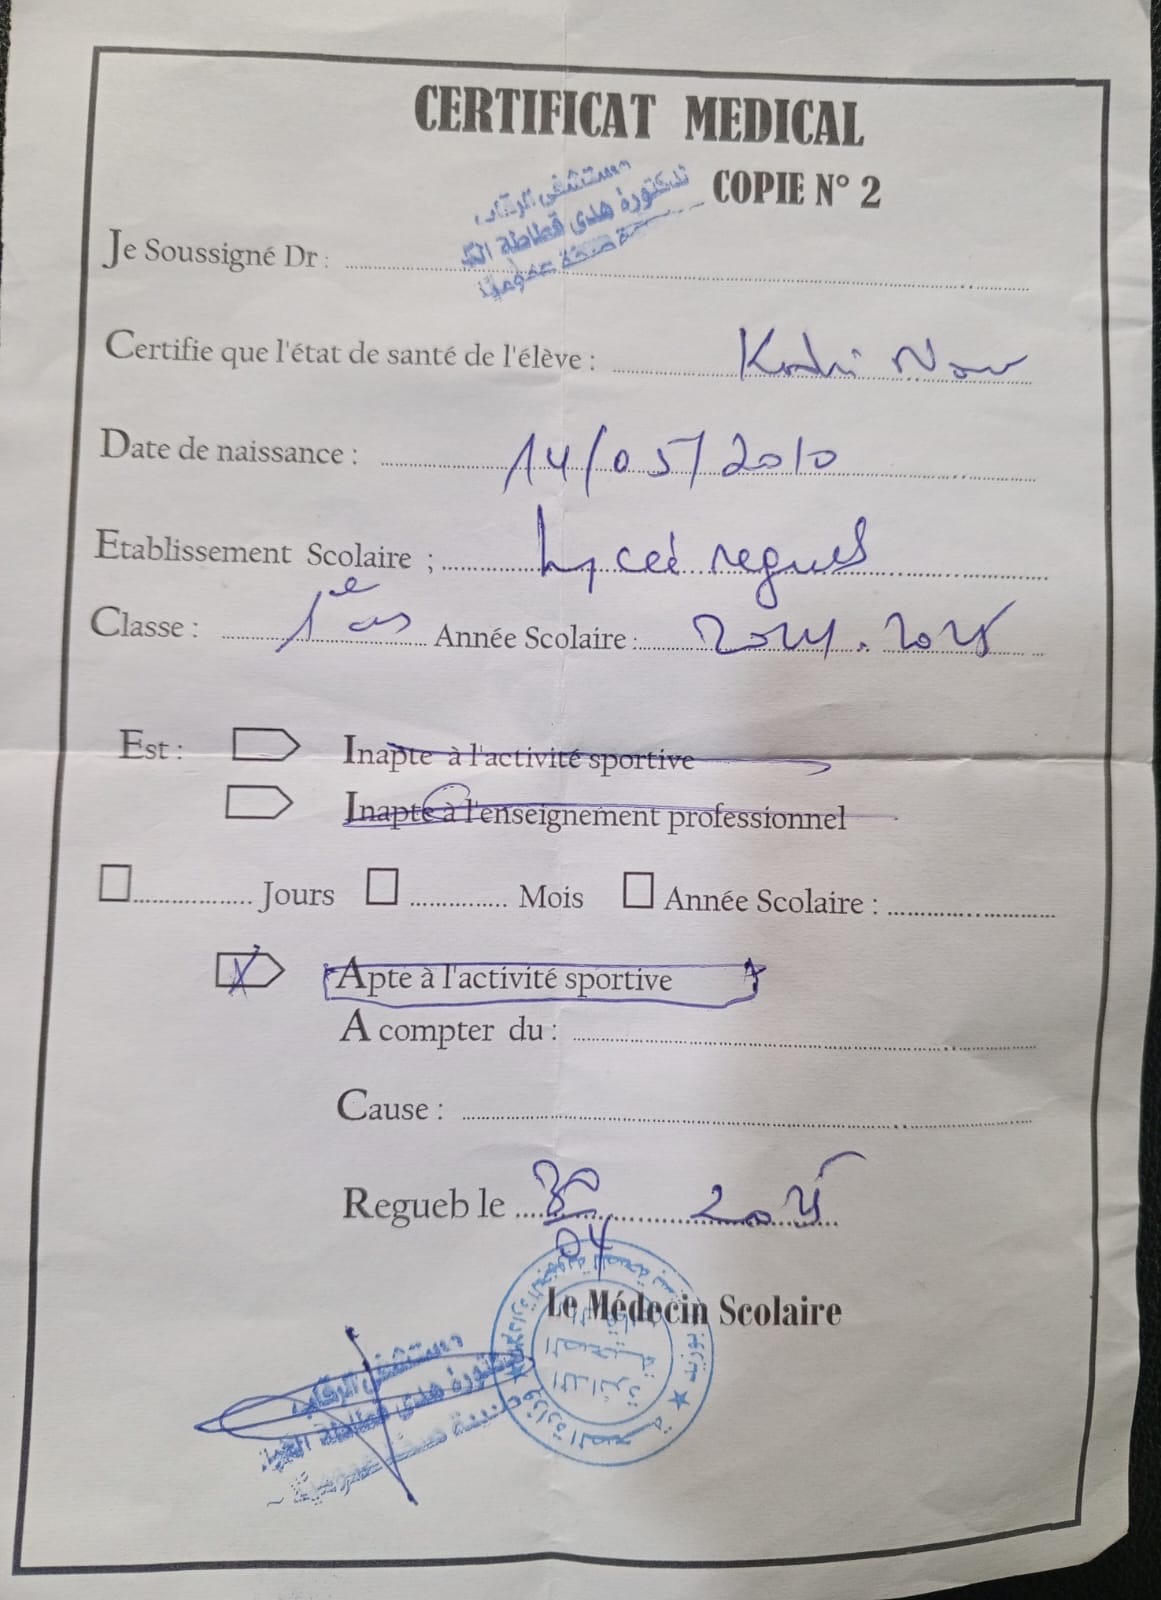 CERTIFICAT MEDICAL
COPIE N° 2
مستشفى الرقاب
الدكتورة هدى قطاطة
صحة عمومية
Je Soussigné Dr :
Certifie que l'état de santé de l'élève : Kadri Nour
Date de naissance : 14/05/2010
Etablissement Scolaire ; Lycée regueb
Classe : 1e as Année Scolaire : 2024. 2025
Est : Inapte à l'activité sportive
Inapte à l'enseignement professionnel
Jours Mois Année Scolaire :
X Apte à l'activité sportive
A compter du :
Cause :
Regueb le 30 04 2025
Le Médecin Scolaire
وزارة الصحة
مستشفى الرقاب
هدى قطاطة